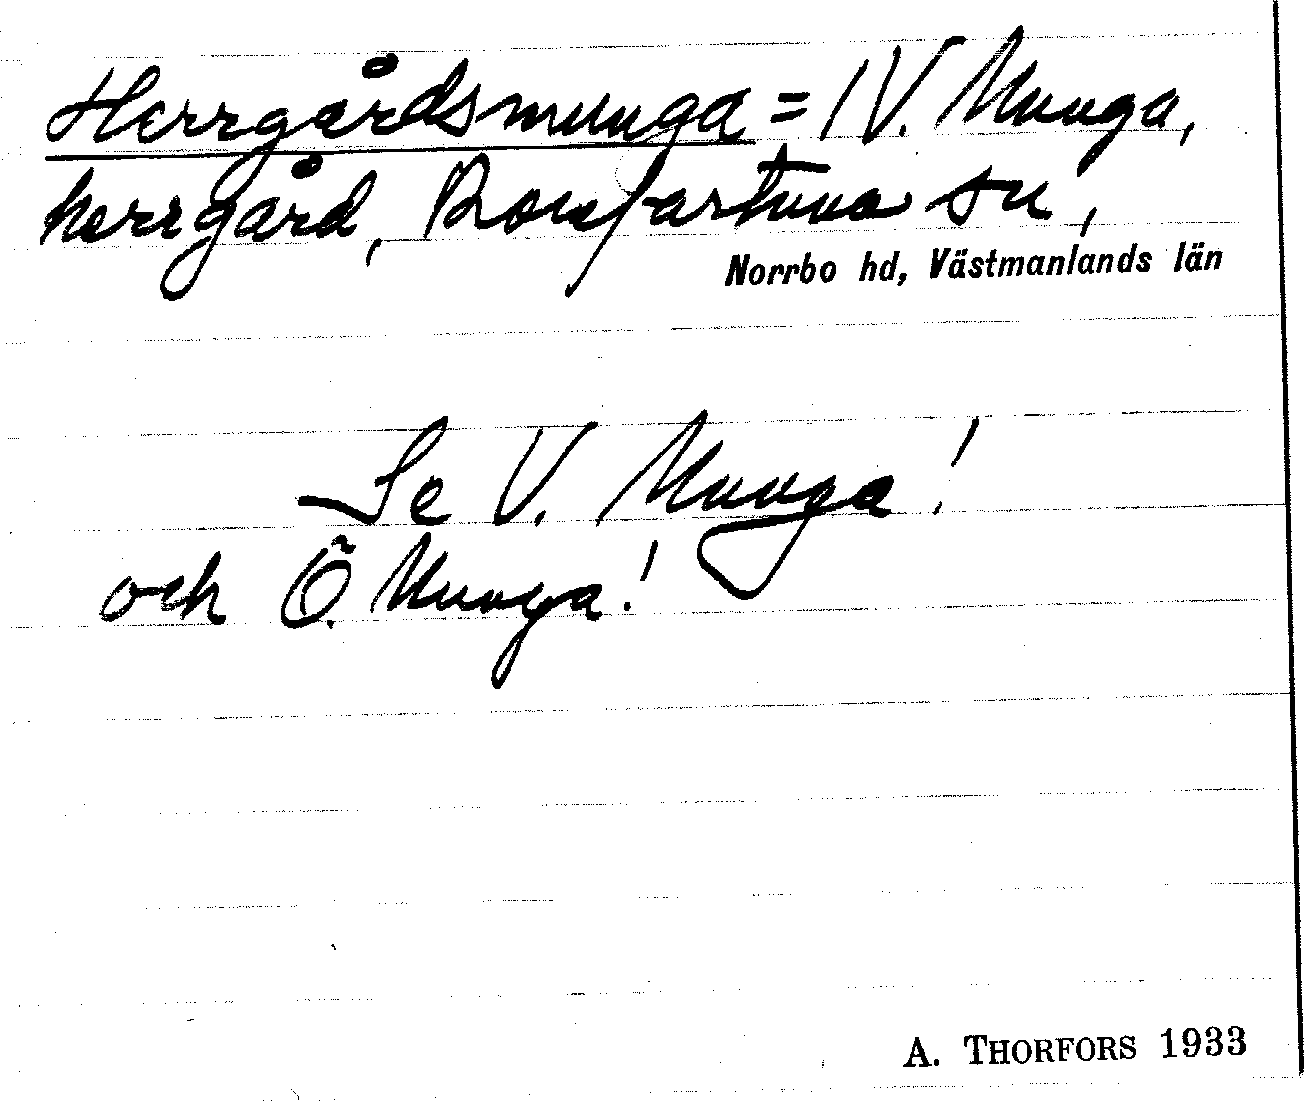 Herrgårdsmunga = / V. Munga,
herrgård, Romfartuna sn,
Norrbo hd, Västmanlands län
Se V. Munga!
och Ö. Munga!
A. THORFORS 1933